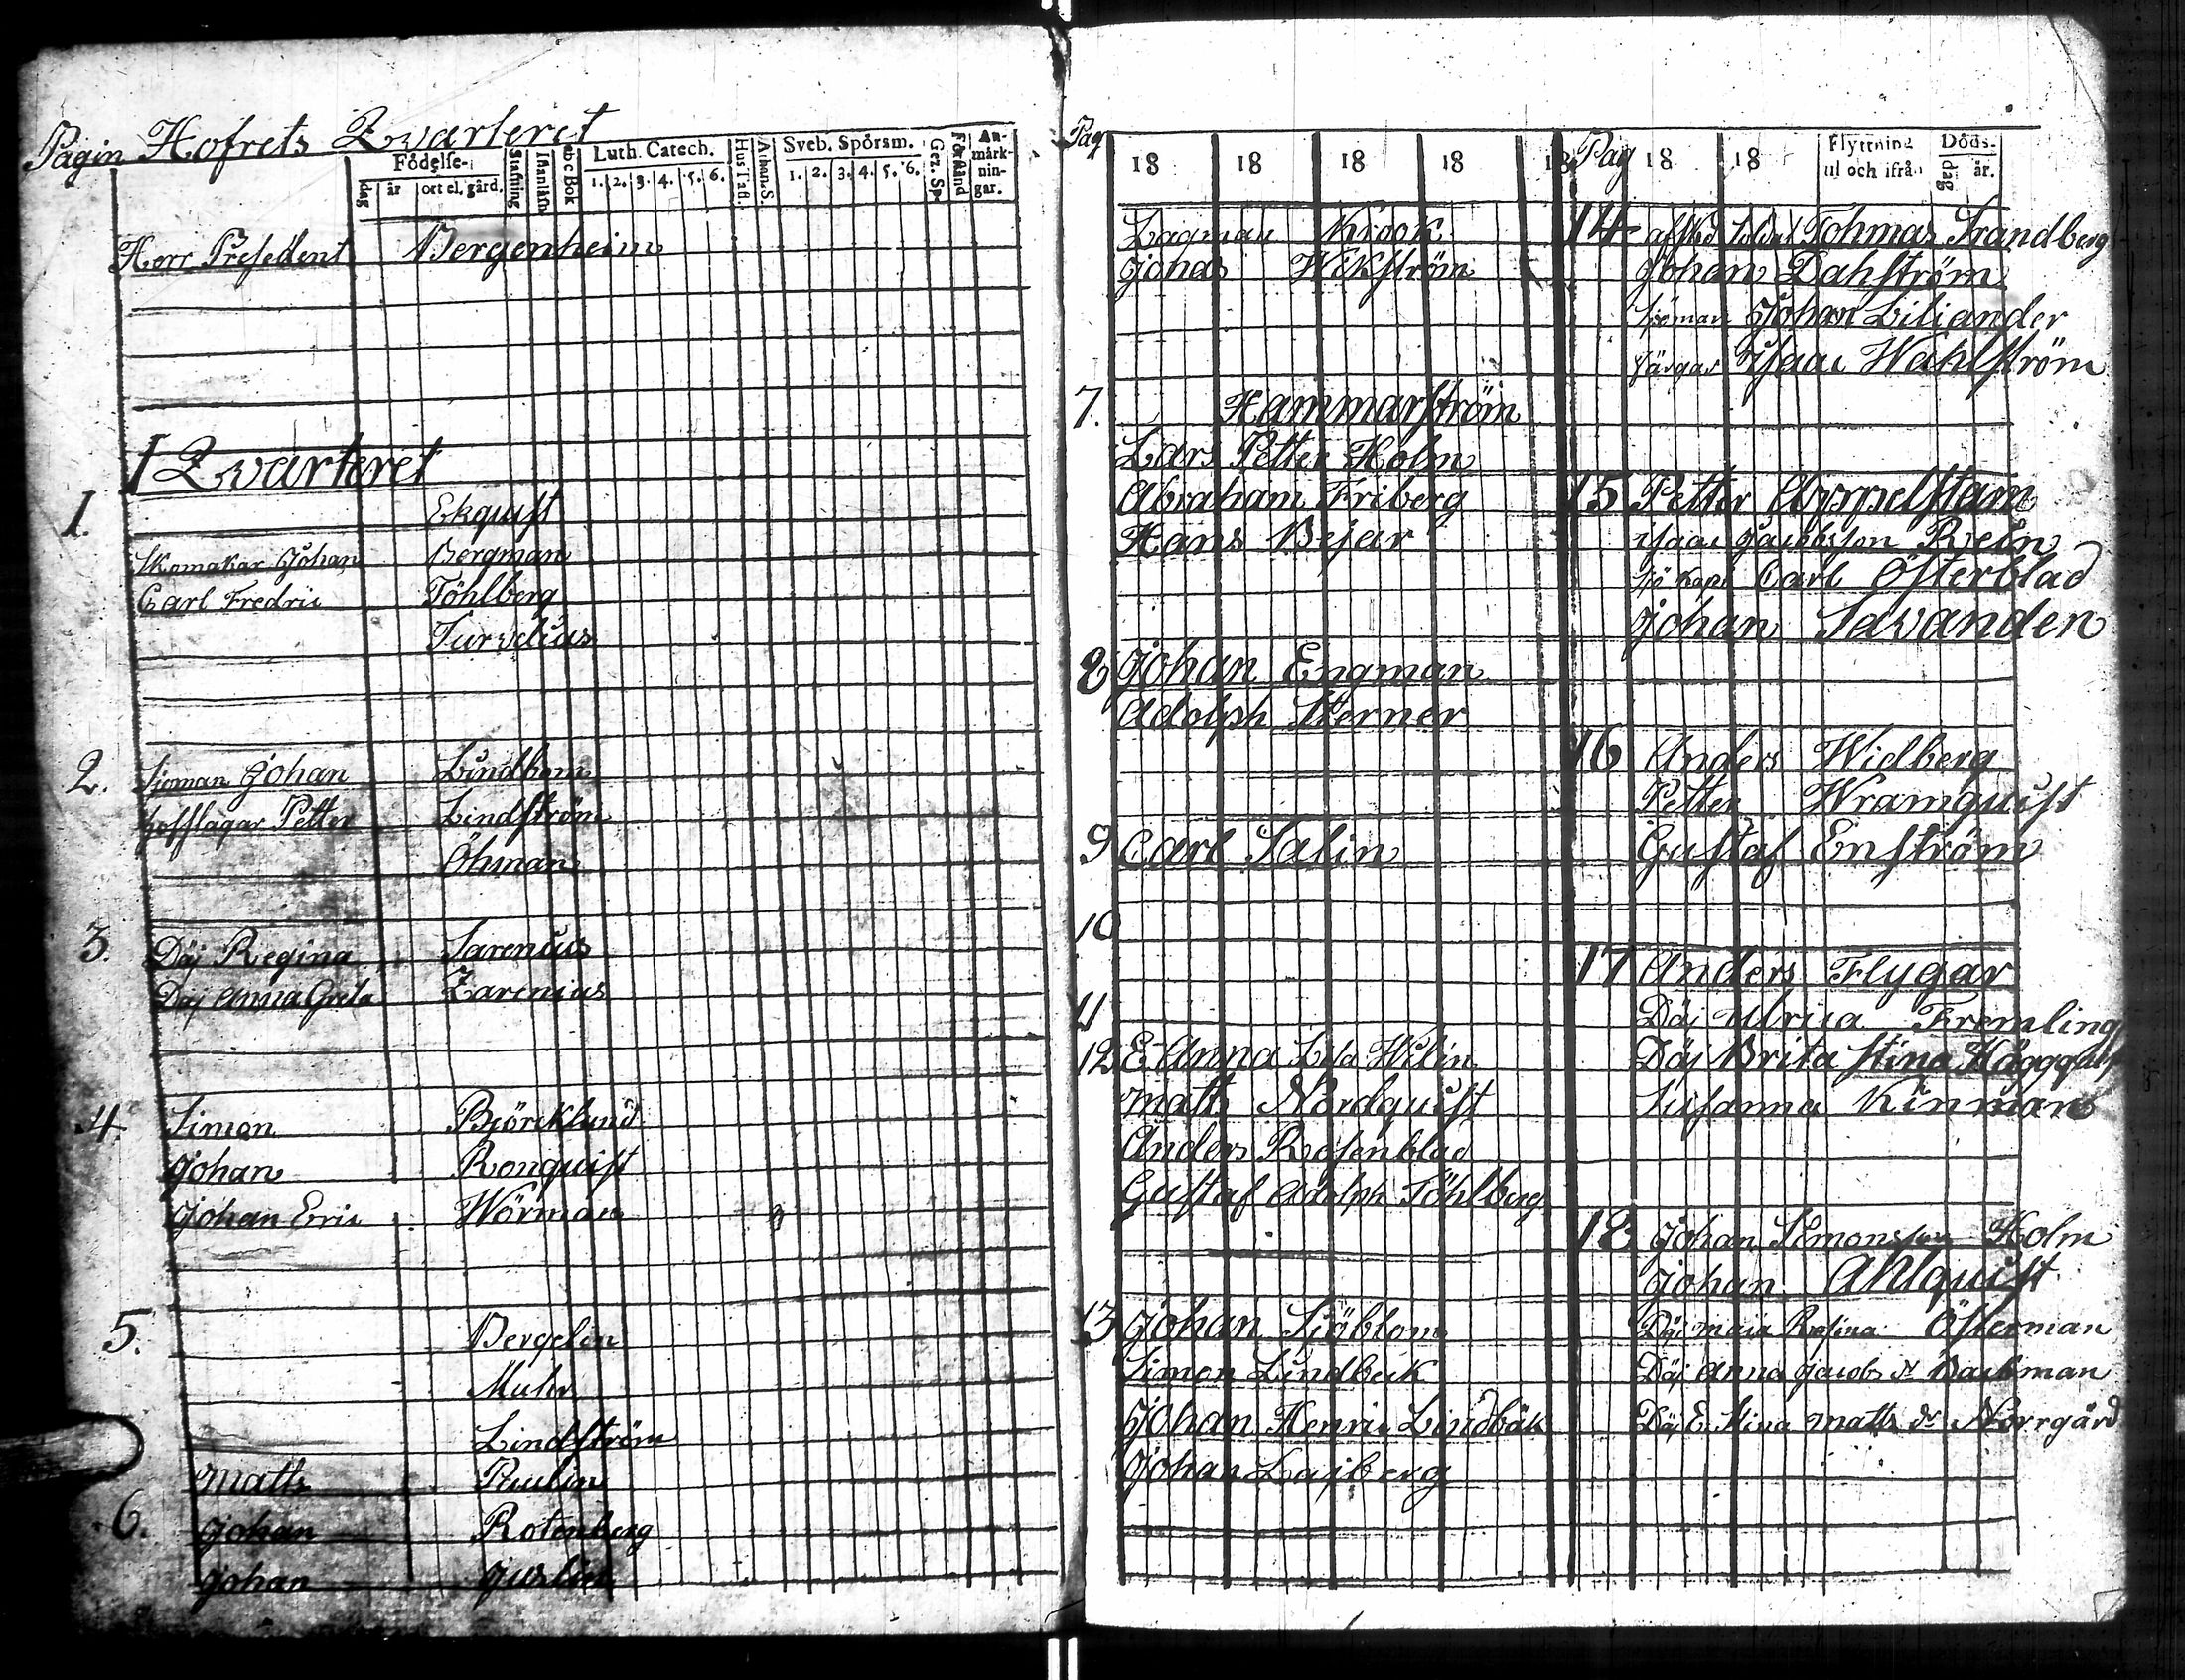 Pagin Hofrets Qvarteret
Födelse- dag år ort el. gård. Stafning Innanläsn abc Bok Luth. Catech. 1. 2. 3. 4. 5. 6. Hus Tafl. Athan. S. Sveb. Spörsm. 1. 2. 3. 4. 5. 6. Gez. Sp. Förstånd An- märk- nin- gar.
Herr President Bergenheim
I Qvarteret
1. Ekquist
Skomakar Johan Bergman
Carl Fredric Töhlberg
Turvelius
2. Sjöman Johan Lindbom
hofslagar Petter Lindström
Öhman
3. Däj Regina Sarenius
Däj Anna Greta Zarenius
4. Simon Björcklund
Johan Ronquist
Johan Eric Wörman
5. Bergelin
Muhr
Lindström
Matts Paulin
6. Johan Rotenberg
Johan Juslin
Pag 18 18 18 18 18
Lagman Krook
Johas Wikström
7. Hammarström
Lars Petter Holm
Abraham Friberg
Hans Bejar
8 Johan Engman
Adolph Sterner
9 Carl Salin
10
11
12 E. Anna Lisa Wilin
Matts Nordquist
Anders Rosenblad
Gustaf Adolph Töhlberg
13 Johan Sjöblom
Simon Lindbeck
Johan Henric Lindbäk
Johan Lajberg
Pag 18 18 Flyttning til och ifrån Döds- dag år.
14 afsked soldat Tohmas Srandberg
Johan Dahström
Sjöman Johan Liliander
färgar Isaac Wahlström
15 Petter Appelstam
Isaac Jacobsson Rein
Sjö Kapt Carl Österblad
Johan Savanden
16 Anders Widberg
Petter Wramquist
Gustaf Enström
17 Anders Flygar
Däj Ulrica Fremling
Däj Brita Stina Häggqvist
Susanna Kinman
18 Johan Simonsson Holm
Johan Ahlquist
Däj Maja Rosina Österman
Däj Anna Jacobs dr Backman
Däj E. Stina Matts dr Norrgård